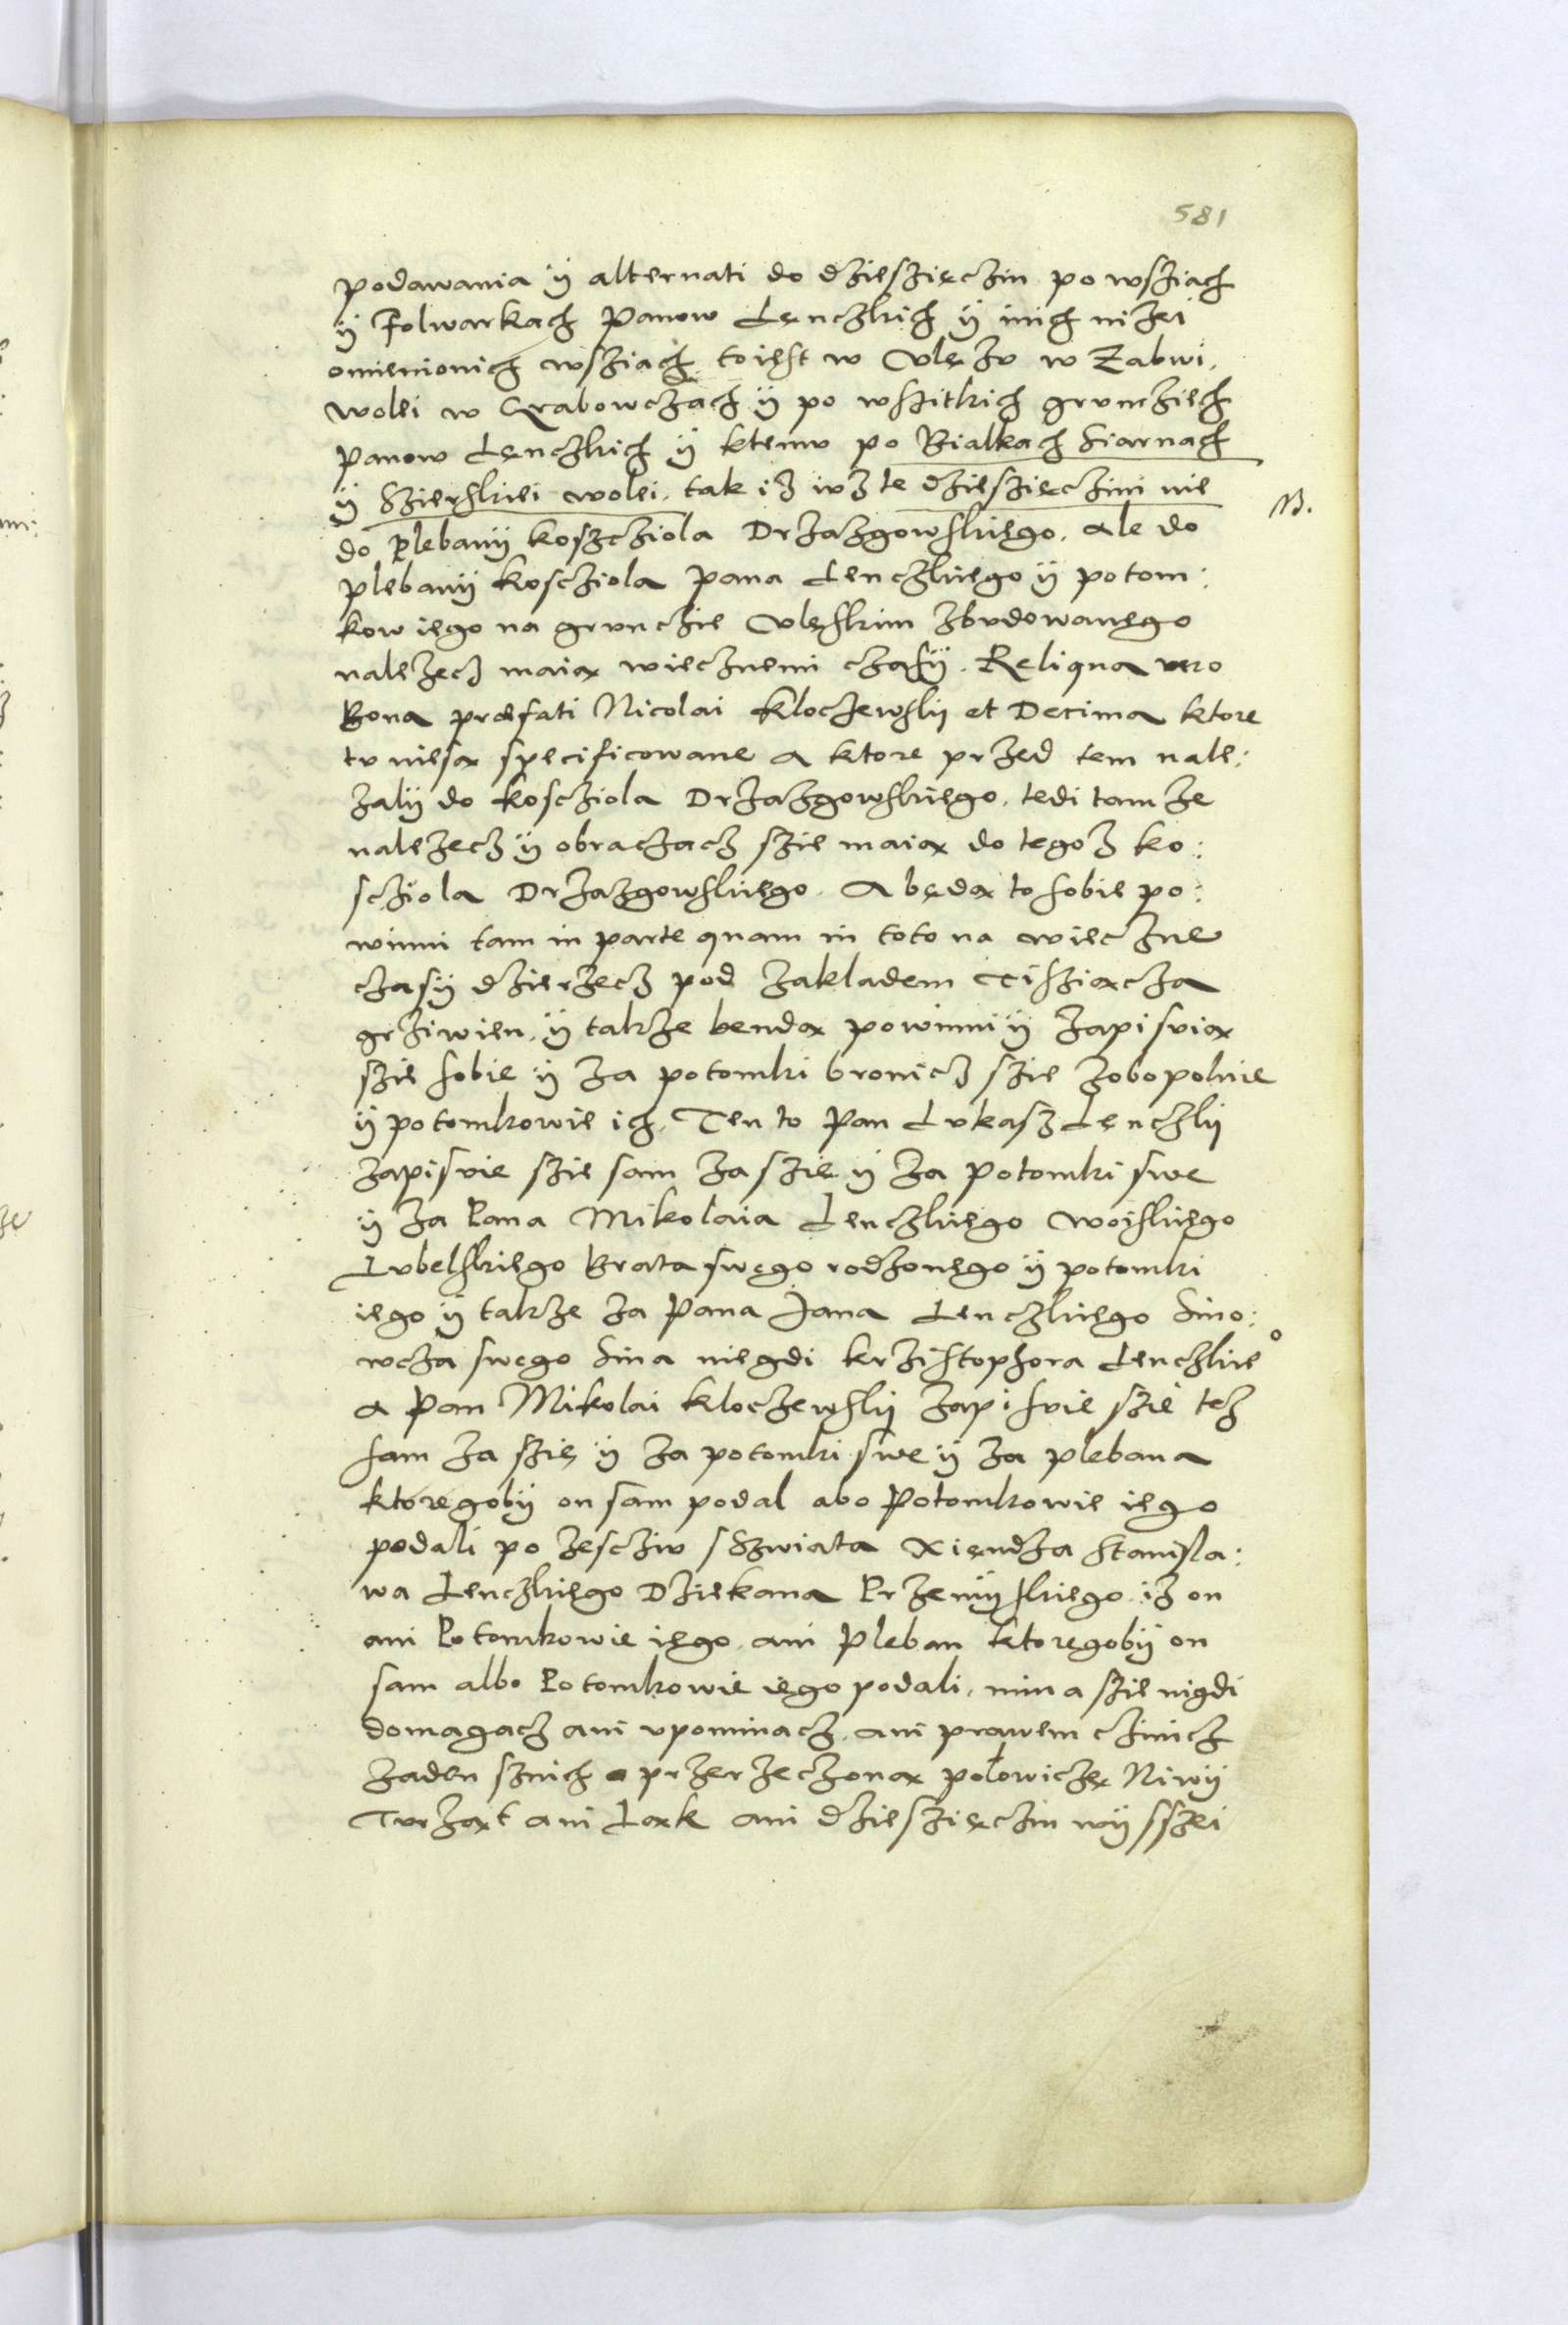 581
podawania ÿ alternati do dzieszięczin po wsziach
ÿ Folwarkach Panow Lęnczkich ÿ inich niżei
omienionich wsziach to iest w Vlężv w Zabwi,
woléi w Grabowczach ÿ po wszitkich grvnczięch
Panow Lęnczkich ÿ ktemv po Bialkach Siarnach
ÿ Szierskiei wolei, tak iz ivz te dzieszięczini nie
NB.
do Plebanÿ koszcziola Drzazgowskięgo, ale do
plebanÿ kościola Pana Lenczkięgo ÿ potom:
kow iego na grvnczie Vlęskim zbvdowanęgo
nalezecz maią wiecznemi czasÿ. Reliqua vero
Bona præfati Nicolai Kloczewskÿ et Decima ktore
tv niesą specificowane a ktore przed tem nale:
zalÿ do koscziola Drzazgowskięgo, tedi tam ze
nalezecz ÿ obraczacz szie maią do tegoz ko:
scziola Drzazgowskięgo. A będą to sobie po:
winni tam in parte quam in toto na wieczne
czasÿ dzierzecz pod zakladem Tisziącza
grziwien, ÿ takze bendą powinni ÿ zapisvią
szie sobie ÿ za potomki bronicz szie zobopolnie
ÿ potomkowie ich. Ten to Pan Lvkasz Lęnczkÿ
zapisvie szie sam za szię ÿ za potomki swe
ÿ za Pana Mikolaia Lenczkięgo woiskięgo
Lvbelskięgo Brata swęgo rodzonęgo ÿ potomki
iego ÿ takze za Pana Jana Lenczkięgo Sino:
wcza swęgo Sina niegdi krzistophora Lenczkie°
a Pan Mikolai Kloczewskÿ zapisvie szie tez
sam za szię ÿ za potomki swe ÿ za plebana
ktoręgobÿ on sam podal abo Potomkowie iego
podali po zescziv s Szwiata Xiendza Stanisla:
wa Lenczkięgo Dziekana Przemÿskięgo iz on
ani Potomkowie iego, ani Pleban ktoręgobÿ on
sam albo Potomkowie iego podali, nima szie nigdi
domagacz ani vpominacz, ani prawem czinicz
zaden sznich o przerzeczoną polowiczę Niwÿ
Tvrzą t ani Ląk ani dziesziączin wÿsszei